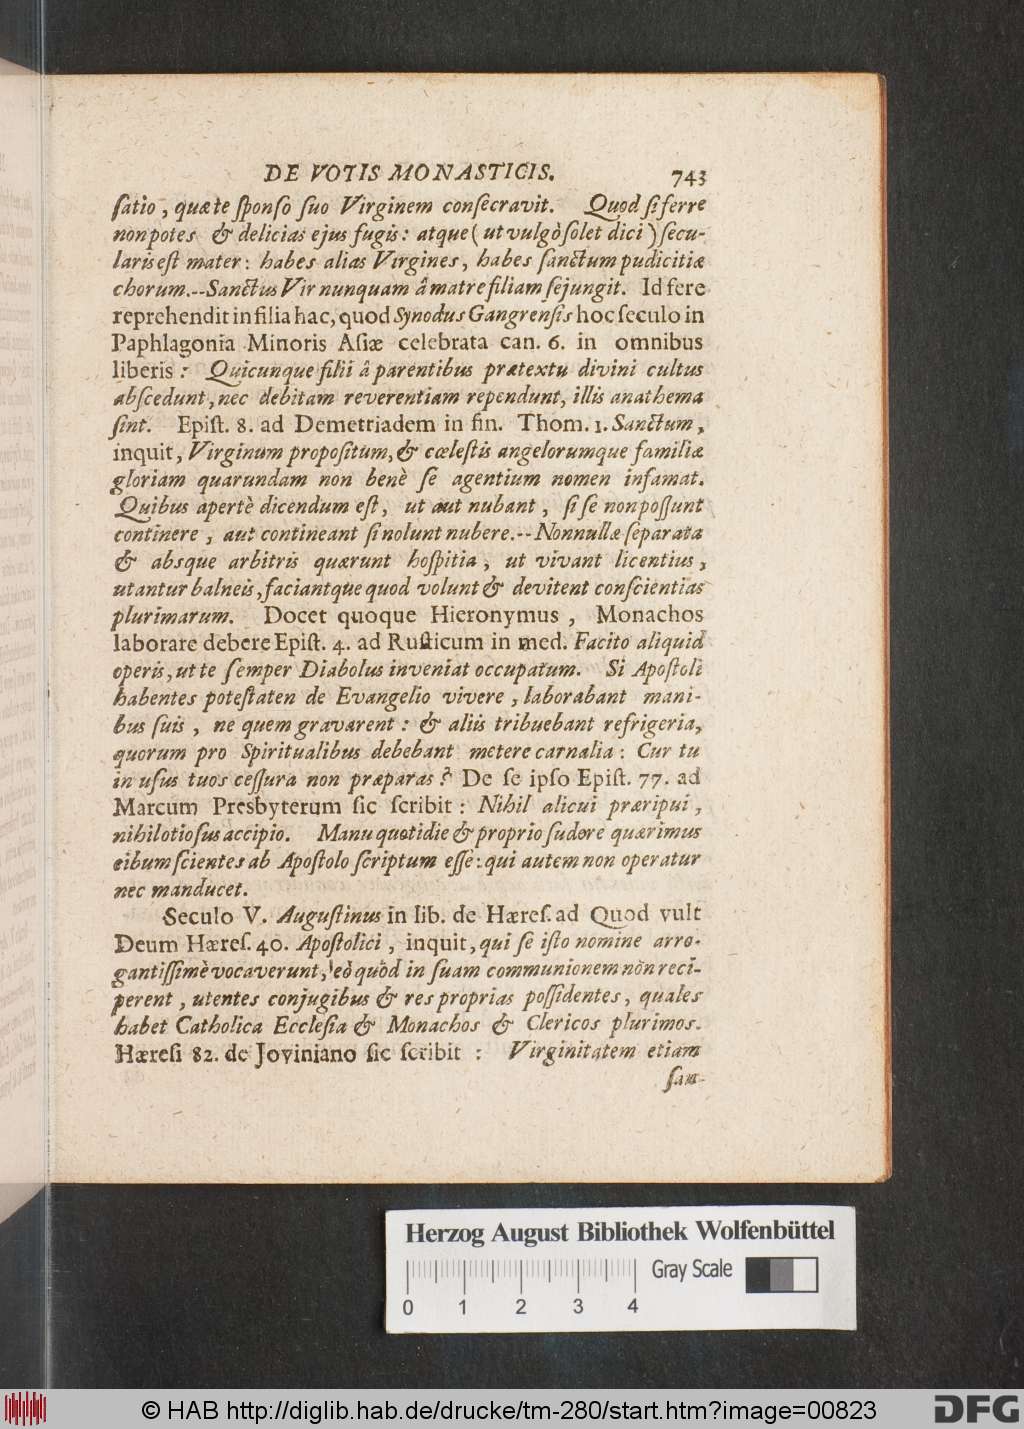 DE VOTIS MONASTICIS. 743
ſatio, quæ te ſponſo ſuo Virginem conſecravit. Quod ſi ferre
non potes & delicias ejus fugis: atque (ut vulgò ſolet dici) ſecu-
laris eſt mater: habes alias Virgines, habes ſanctum pudicitiæ
chorum.--Sanctus Vir nunquam â matre filiam ſejungit. Id fere
reprehendit in filia hac, quod Synodus Gangrenſis hoc ſeculo in
Paphlagonia Minoris Aſiæ celebrata can. 6. in omnibus
liberis: Quicunque filii â parentibus prætextu divini cultus
abſcedunt, nec debitam reverentiam rependunt, illis anathema
ſint. Epiſt. 8. ad Demetriadem in fin. Thom. 1. Sanctum,
inquit, Virginum propoſitum, & cœleſtis angelorumque familiæ
gloriam quarundam non benè ſe agentium nomen infamat.
Quibus apertè dicendum eſt, ut aut nubant, ſi ſe non poſſunt
continere, aut contineant ſi nolunt nubere.--Nonnullæ ſeparata
& absque arbitris quærunt hoſpitia, ut vivant licentius,
utantur balneis, faciantque quod volunt & devitent conſcientias
plurimarum. Docet quoque Hieronymus, Monachos
laborare debere Epiſt. 4. ad Ruſticum in med. Facito aliquid
operis, ut te ſemper Diabolus inveniat occupatum. Si Apoſtoli
habentes poteſtaten de Evangelio vivere, laborabant mani-
bus ſuis, ne quem gravarent: & aliis tribuebant refrigeria,
quorum pro Spiritualibus debebant metere carnalia: Cur tu
in uſus tuos ceſſura non præparas? De ſe ipſo Epiſt. 77. ad
Marcum Presbyterum ſic ſcribit: Nihil alicui præripui,
nihil otioſus accipio. Manu quotidie & proprio ſudore quærimus
cibum ſcientes ab Apoſtolo ſcriptum eſſe: qui autem non operatur
nec manducet.
Seculo V. Auguſtinus in lib. de Hæreſ. ad Quod vult
Deum Hæreſ. 40. Apoſtolici, inquit, qui ſe iſto nomine arro-
gantiſſimè vocaverunt, eò quòd in ſuam communionem non reci-
perent, utentes conjugibus & res proprias poſſidentes, quales
habet Catholica Eccleſia & Monachos & Clericos plurimos.
Hæreſi 82. de Joviniano ſic ſcribit: Virginitatem etiam
ſan-
Herzog August Bibliothek Wolfenbüttel
Gray Scale
0 1 2 3 4
© HAB http://diglib.hab.de/drucke/tm-280/start.htm?image=00823
DFG